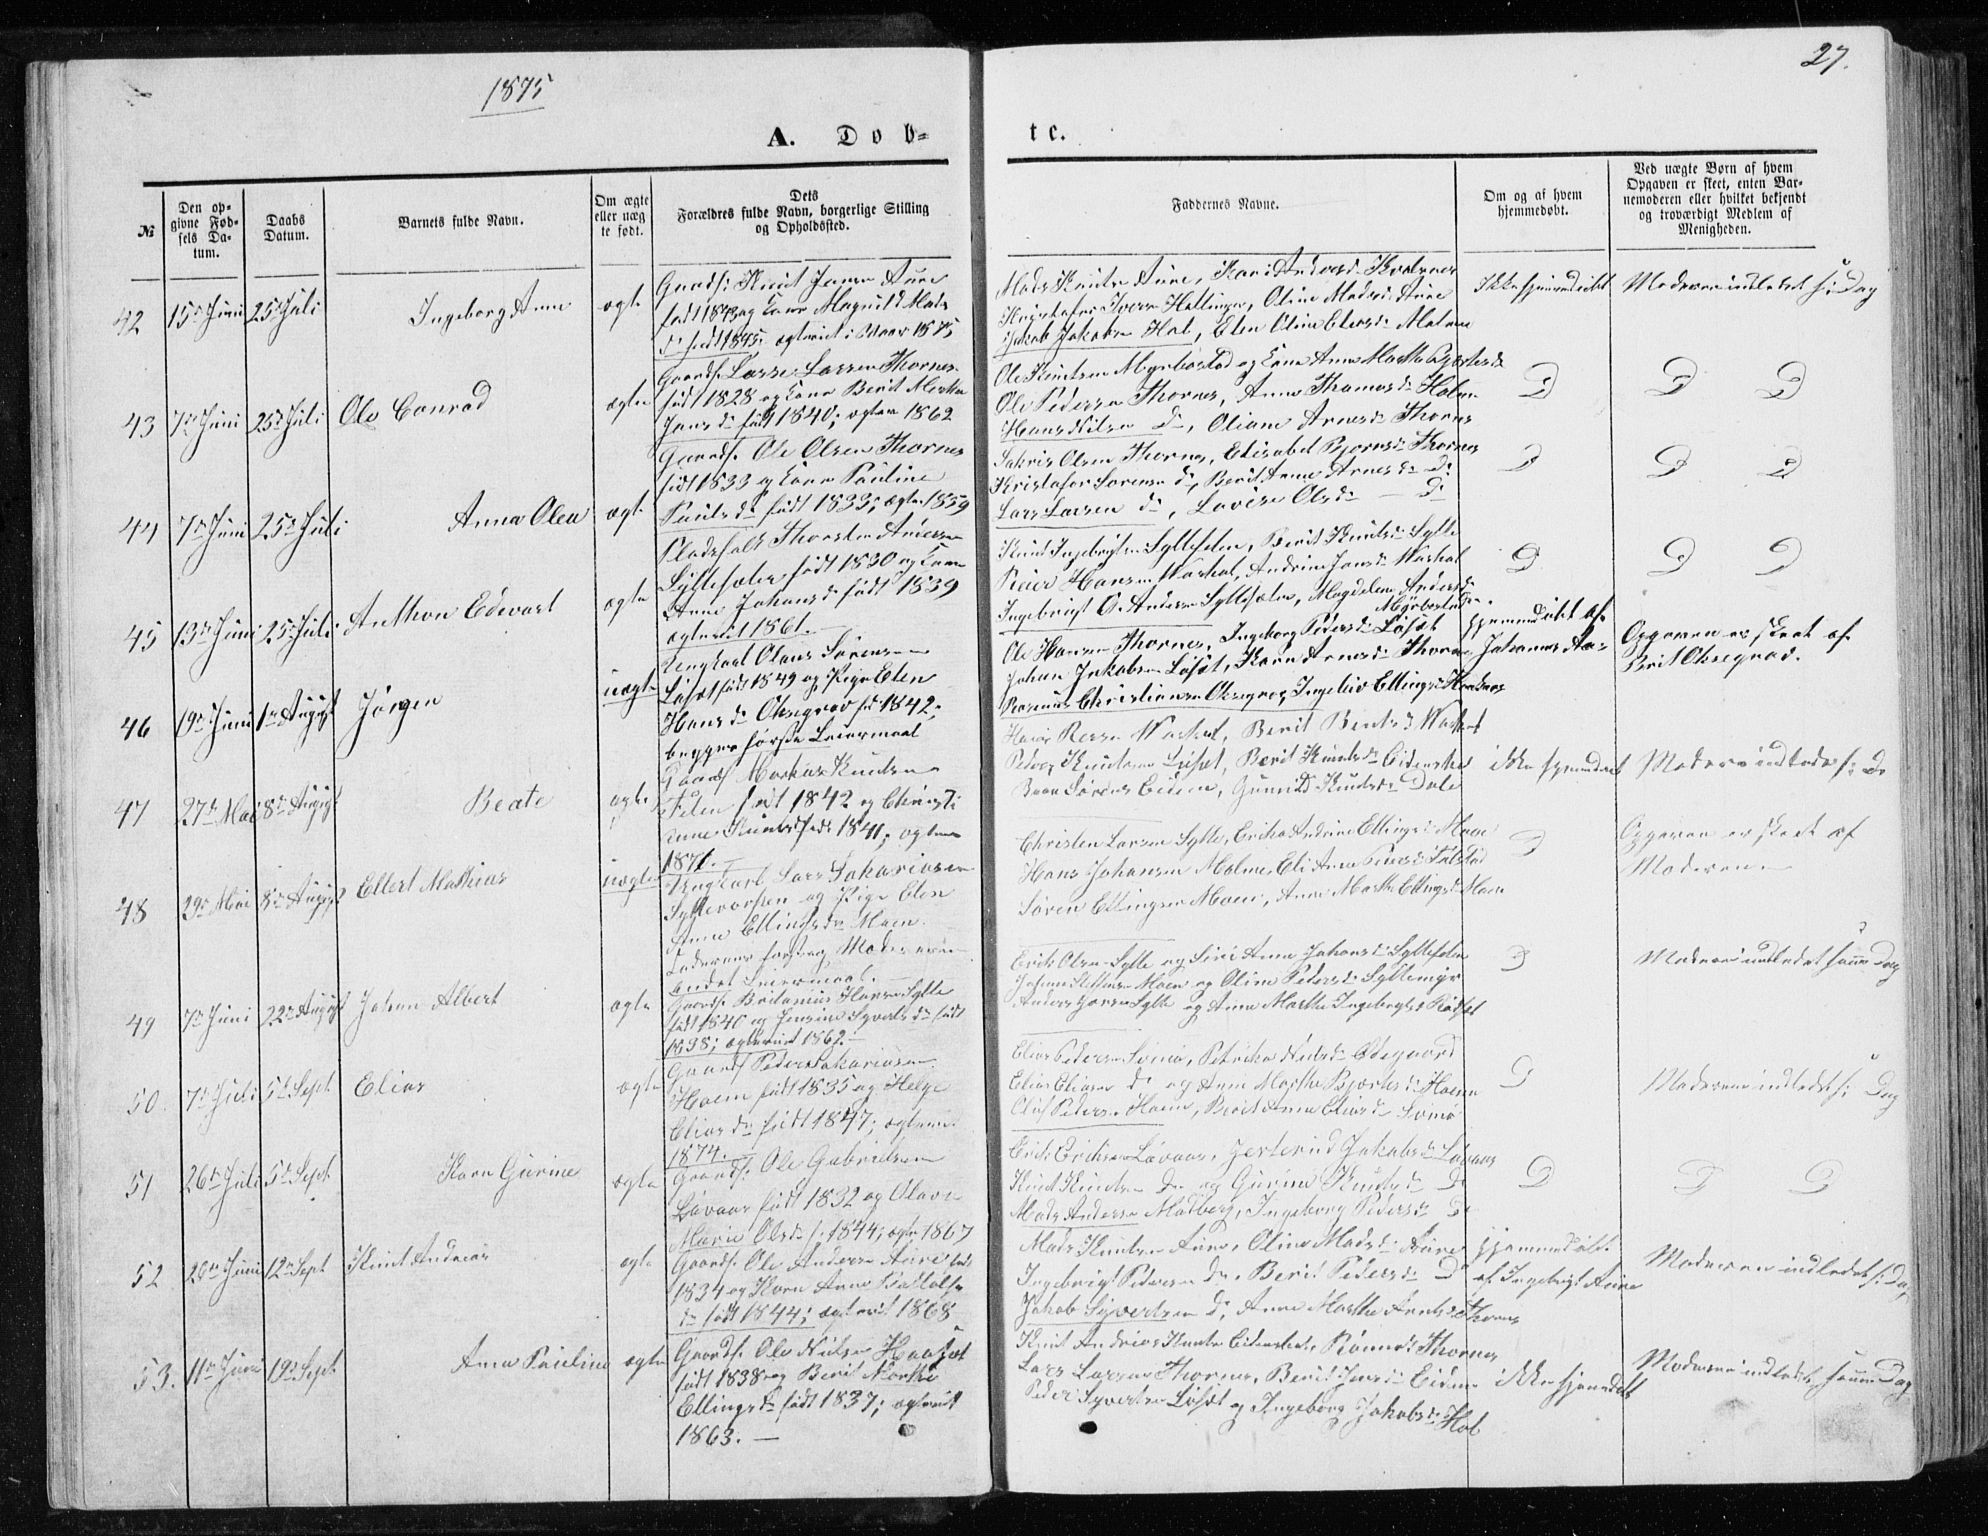 1875
27.
A. Døb-
te.
№
Den op-
givne Fød-
sels Da-
tum.
Daabs
Datum.
Barnets fulde Navn.
Om ægte
eller uæg
te født.
Dets
Forældres fulde Navn, borgerlige Stilling
og Opholdssted.
Faddernes Navne.
Om og af hvem
hjemmedøbt.
Ved uægte Børn af hvem
Opgaven er skeet, enten Bar-
nemoderen eller hvilket bekjendt
og troværdigt Medlem af
Menigheden.
42 15de Juni 25de Juli Ingeborg Anne ægte
Gaardf: Knut Aure
født 1843 og Kone Magnild Mads
dr født 1845; ægteviet i Vaar 1875
Mads Knutsn Aure, Kari Andersdr
Kristofer Iversn Hellingen, Oline Madsdr Aure
Jakob Jakobsn Hol, Elen Oline
Ikke hjemmedøbt
Moderen indledet s: Dag
43 7de Juni 25de Juli Ole Conrad ægte
Gaardf. Lasse Larsen Thornes
født 1828 og Kone Berit Marthe
Jensdr født 1840; ægtev 1862
Ole Knutsen Myrbøstad og Kone Anne Marthe
Ole Pedersen Thornes, Anne Thomasdr Holm
Hans Nilsen Do, Oliane Arnesdr Thornes
D D D
44 7de Juni 25de Juli Anna Olea ægt.
Gaardf. Ole Olsen Thornes
født 1833 og Kone Pauline
Paulsdr født 1833; ægtev 1859
Sakris Olsen Thornes, Elisabet Bjørnsdr Thornes
Kristofer Sørensen do, Berit Anne Arnesdr Do
Lars Larsen do, Lovise Olsdr — Do
D D D
45 13de Juni 25de Juli Anthon Edvart ægte
Pladsfolk Thorsten Andersen
Syltesæter født 1830 og Kone
Anne Johansdr født 1839
ægteviet 1861.
Knut Ingebrigtsn Syltesæter, Berit Knutsdr Sylte
Peder Hansen Warhol, Andrine Jensdr Warhol
Ingebrigt O. Andersn Syltesæter, Magdelene Andersdr
Myrbøstad
D D D
46 19de Juni 1ste August Jørgen uægte
Ungkarl Olaus Sørensen
Løset født 1849 og Pige Elen
Hansdr Oksegrov fød 1842;
begges første Leiermaal
Ole Hansen Thornes, Ingeborg Pedersdr Løset
Johan Jakobsen Løset, Karn Arnesdr Thornes
Rasmus Christiansen Oksegrov, Ingeleiv Ellingsdr
hjemmedøbt af
Johannes
Opgaven er skeet af
Berit Oksegrov.
47 27de Mai 8de August Beate ægte
Gaardf Markus Knutsen
født 1842 og Christi
anne Knutsdr født 1841; ægtev
1871.
Warhol, Berit Bentsdr Warhol
Peder Knutsen Løset, Berit Knutsdr
Sørens Eidem, Gunnild Knutsdr Dale
ikke hjemmedøbt
Moderen indledet s: D
48 29de Mai 8de August Ellert Mathias uægte
Ungkarl Lars Sakariasen
og Pige Elen
Anne Ellingsdr Moen.
Faderens første og Moderens
andet Leiermaal.
Christen Larsen Sylte, Ericka Andrine Ellingsdr Moen
Hans Johansen Malme, Eli Anne
Søren Ellingsen Moen, Anne Marthe Ellingsdr Moen
D
Opgaven er skeet af
Moderen
49 7de Juni 22de August Johan Albert ægte
Gaardf. Britanius Hansn Sylte
født 1840 og Jensine Syvertsdr født
1838; ægteviet 1862.
Erik Olsn Sylte og Siri Anne Johansdr Syltesæter
Johan Moen og Oline Pedersdr Syltemyr
Anders Hansen Sylte og Anne Marthe Ingebrigtsdr
D
Moderen indledet samme Dag
50. 7de Juli 5te Sept. Elias ægte
Gaardf Peder Sakariasen
Hoem født 1835 og Helge
Eliasdr født 1847; ægtev
1874.
Elias Pedersn, Petrikke Nilsdr Ødegaard
Elias Eliasen do og Anne Marthe Hoem
Oluf Pedersn Hoem, Berit Anne Eliasdr
D
Moderen indledet s: Dag
51 26de Juli 5te Sept Karn Gurine ægte
Gaardf: Ole Gabrielsen
Løvaas født 1832 og Olava
Marie Olsdr f. 1844; ægtv. 1867
Erik Eriksen Løvaas, Jertrud Jakobsdr Løvaas
Knut Knutsn Do og Gurine Knutsdr D
Mads Andersn Malberg, Ingeborg Pedersdr D
D D D
52 20de Juni 12te Sept Knut Andreas ægte
Gaardf. Ole Andersn Aure født
1834 og Karn Anne
dr født 1844; ægteviet 1868
Mads Knutsen Aure, Oline Madsdr Aure
Ingebrigt Pedersen Do, Berit Pedersdr D
Jakob Syvertsen Do, Anne Marthe Thornes
hjemmedøbt
af Ingebrigt Aure
Moderen indledet s: Dag
53. 11te Juni 19de Sept Anne Pauline ægte
Gaardf. Ole Nilsen
født 1838 og Berit Marthe
Ellingsdr født 1837; ægteviet
1863. —
Knut Andreas Knutsn, Thornes
Lars Larsen Thornes, Berit Jensdr Eidem
Peder Syvertsn Løset og Ingeborg Jakobsdr Hol
ikke hjemmedøbt
Moderen indledet samme Dag